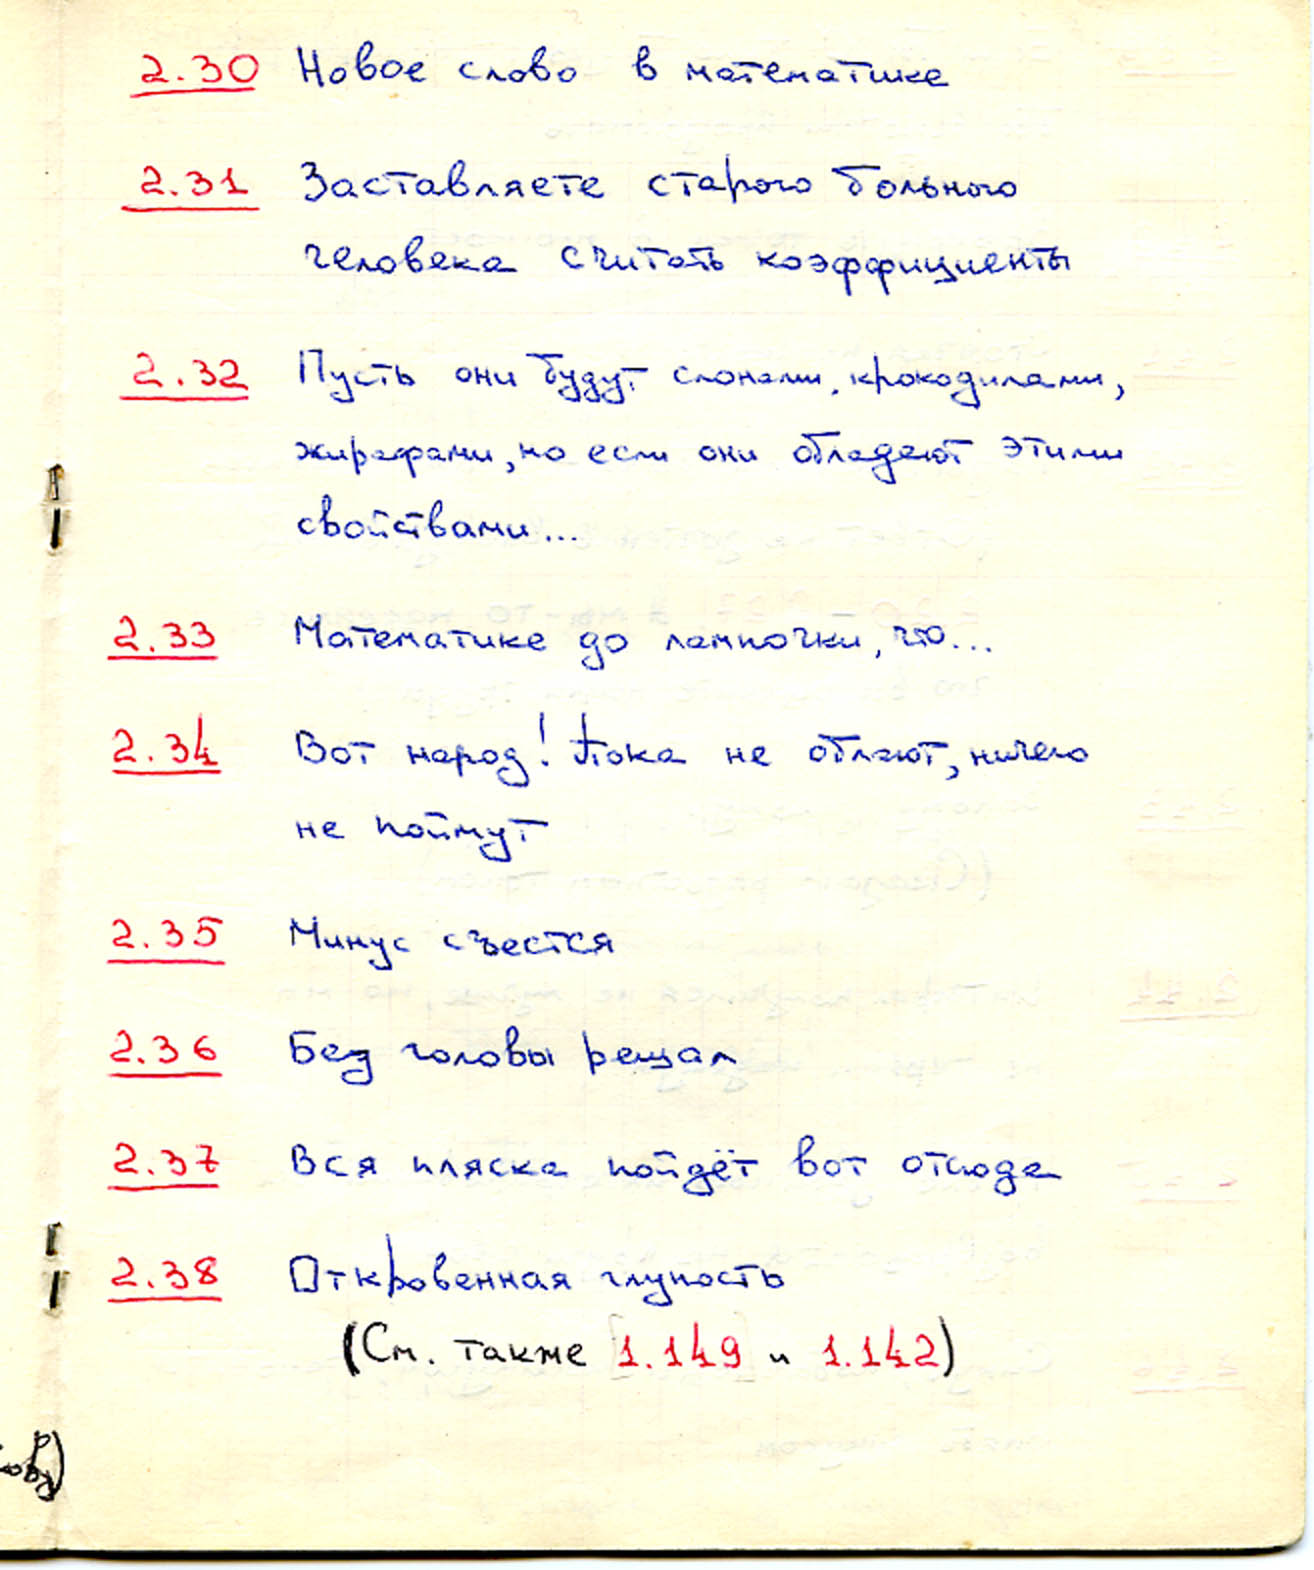 2.30 Новое слово в математике
2.31 Заставляете старого больного
человека считать коэффициенты
2.32 Пусть они будут слонами, крокодилами,
жирафами, но если они обладают этими
свойствами...
2.33 Математике до лампочки, что...
2.34 Вот народ! Пока не облают, ничего
не поймут
2.35 Минус съестся
2.36 Без головы решал
2.37 Вся пляска пойдёт вот отсюда
2.38 Откровенная глупость
(См. также 1.149 и 1.142)